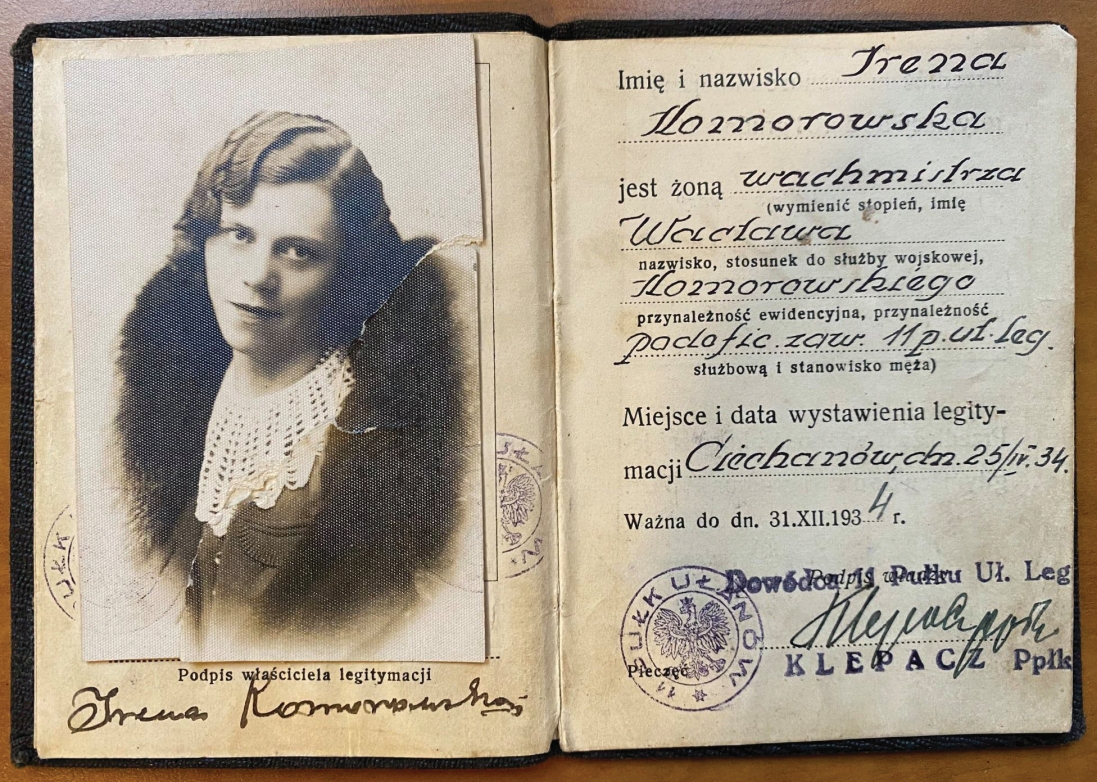 Podpis właściciela legitymacji
Irena Komorowska
Imię i nazwisko Irena
Komorowska
jest żoną wachmistrza
(wymienić stopień, imię
Wacława
nazwisko, stosunek do służby wojskowej,
Komorowskiego
przynależność ewidencyjna, przynależność
podofic. zaw. 11 p. uł. Leg.
służbową i stanowisko męża)
Miejsce i data wystawienia legity-
macji Ciechanów, dn. 25/IV. 34.
Ważna do dn. 31.XII.1934 r.
Podpis władzy
Dowódca 11 Pułku Uł. Leg
KLEPACZ Ppłk
Pieczęć
11 PUŁK UŁANÓW